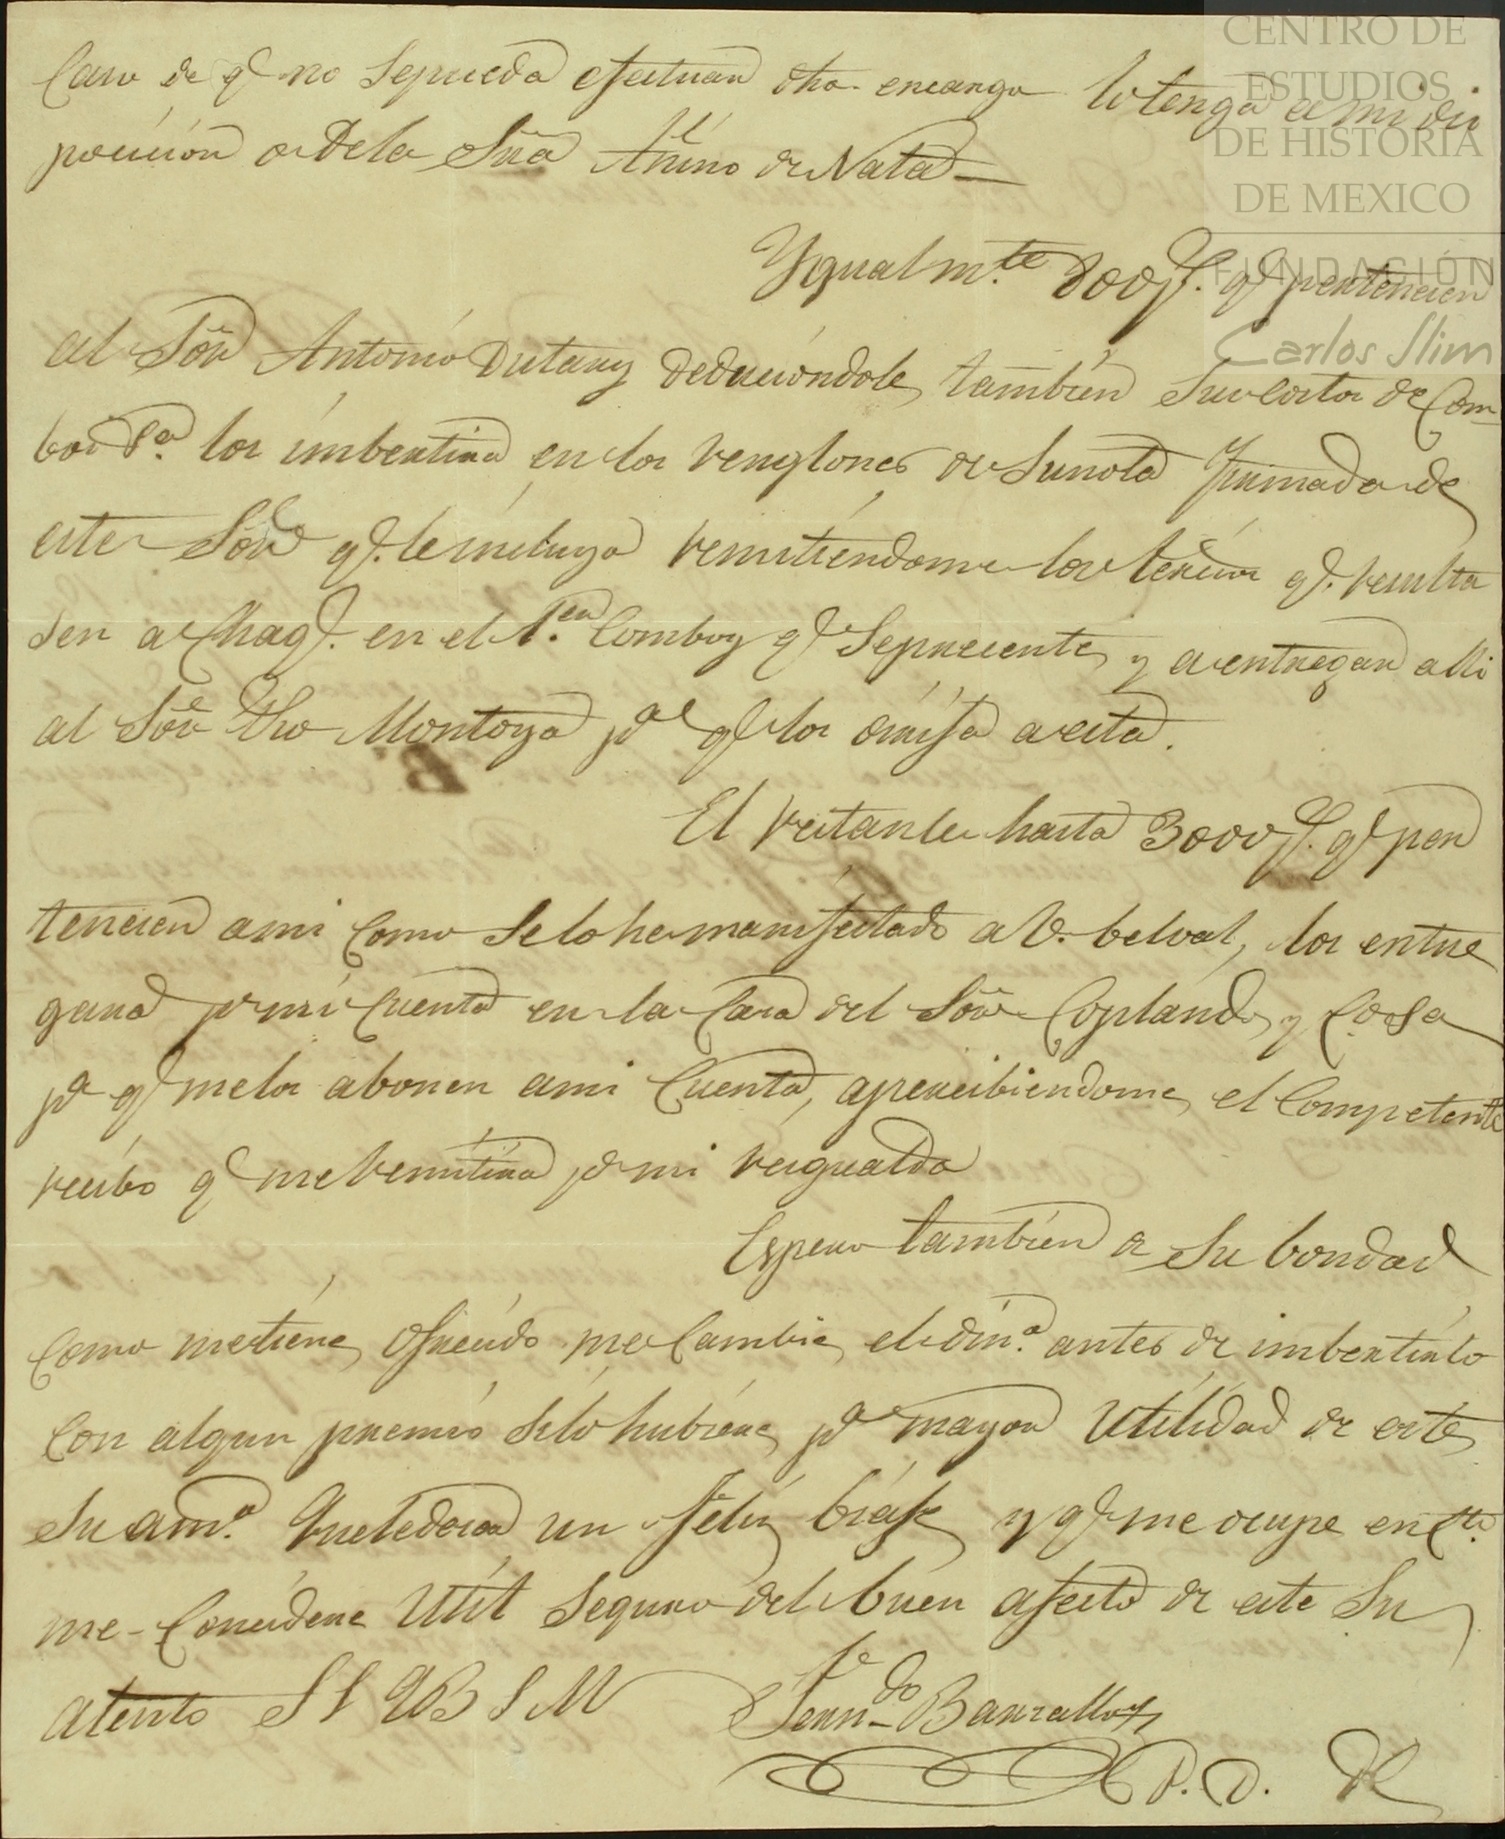 CENTRO DE
ESTUDIOS
DE HISTORIA
DE MEXICO
FUNDACIÓN
Carlos Slim
Caso de qe no Sepueda efectuar dho. encargo lo tenga a mi dis
posicion o dela Sñra de Nata
Ygualm.te 800 p.s qe pertenecen
al Sõr Antonio Dutary deduciondole tambien sus costos de Com
boi P.a los imbertira en los renglones de su nota firmada de
este Sõr qe. le incluyo remitiendome los qe. resulta
sen a Chag.s en el 1.er Comboy qe Sepresente y a entregar alli
al Sõr Montoya pa qe los a esta.
El restante hasta 3000 p.s qe per
tenecen ami Como Selohe manifestado a V. belval, los entre
gara pr mi Cuenta en la Casa del Sõr Copland y Ca
pa qe melos abonen ami Cuenta, apercibiendome el Competente
recibo qe me remitira pa mi resguardo
Espero tambien de Su bondad
Como metiene ofrecido me Cambie el din.o antes de imbertirlo
Con algun premio Silo hubiere pa mayor Utilidad de este
Su am.o Queledesea un feliz biaje y qe me ocupe en
me Concidere Util Seguro del buen afecto de este Su
atento S S Q B S M Fern.do Barzallo
P. D.